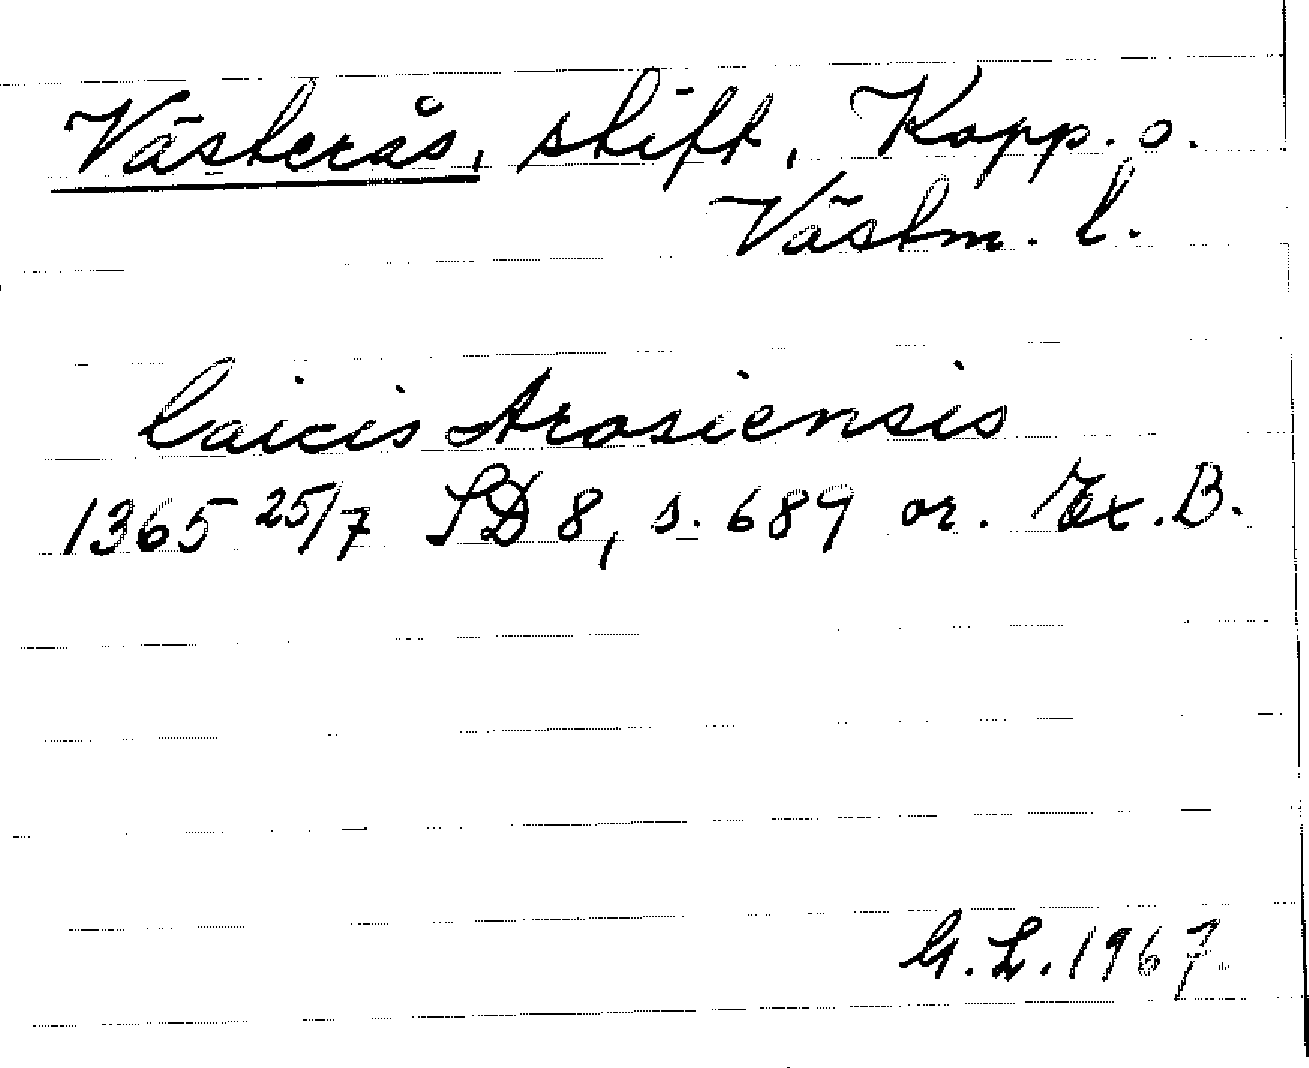 Västerås, stift, Kopp. o.
Västm. l.
laicis Arosiensis
1365 25/7 SD 8, s. 689 or. Ex. B.
G. L. 1967.